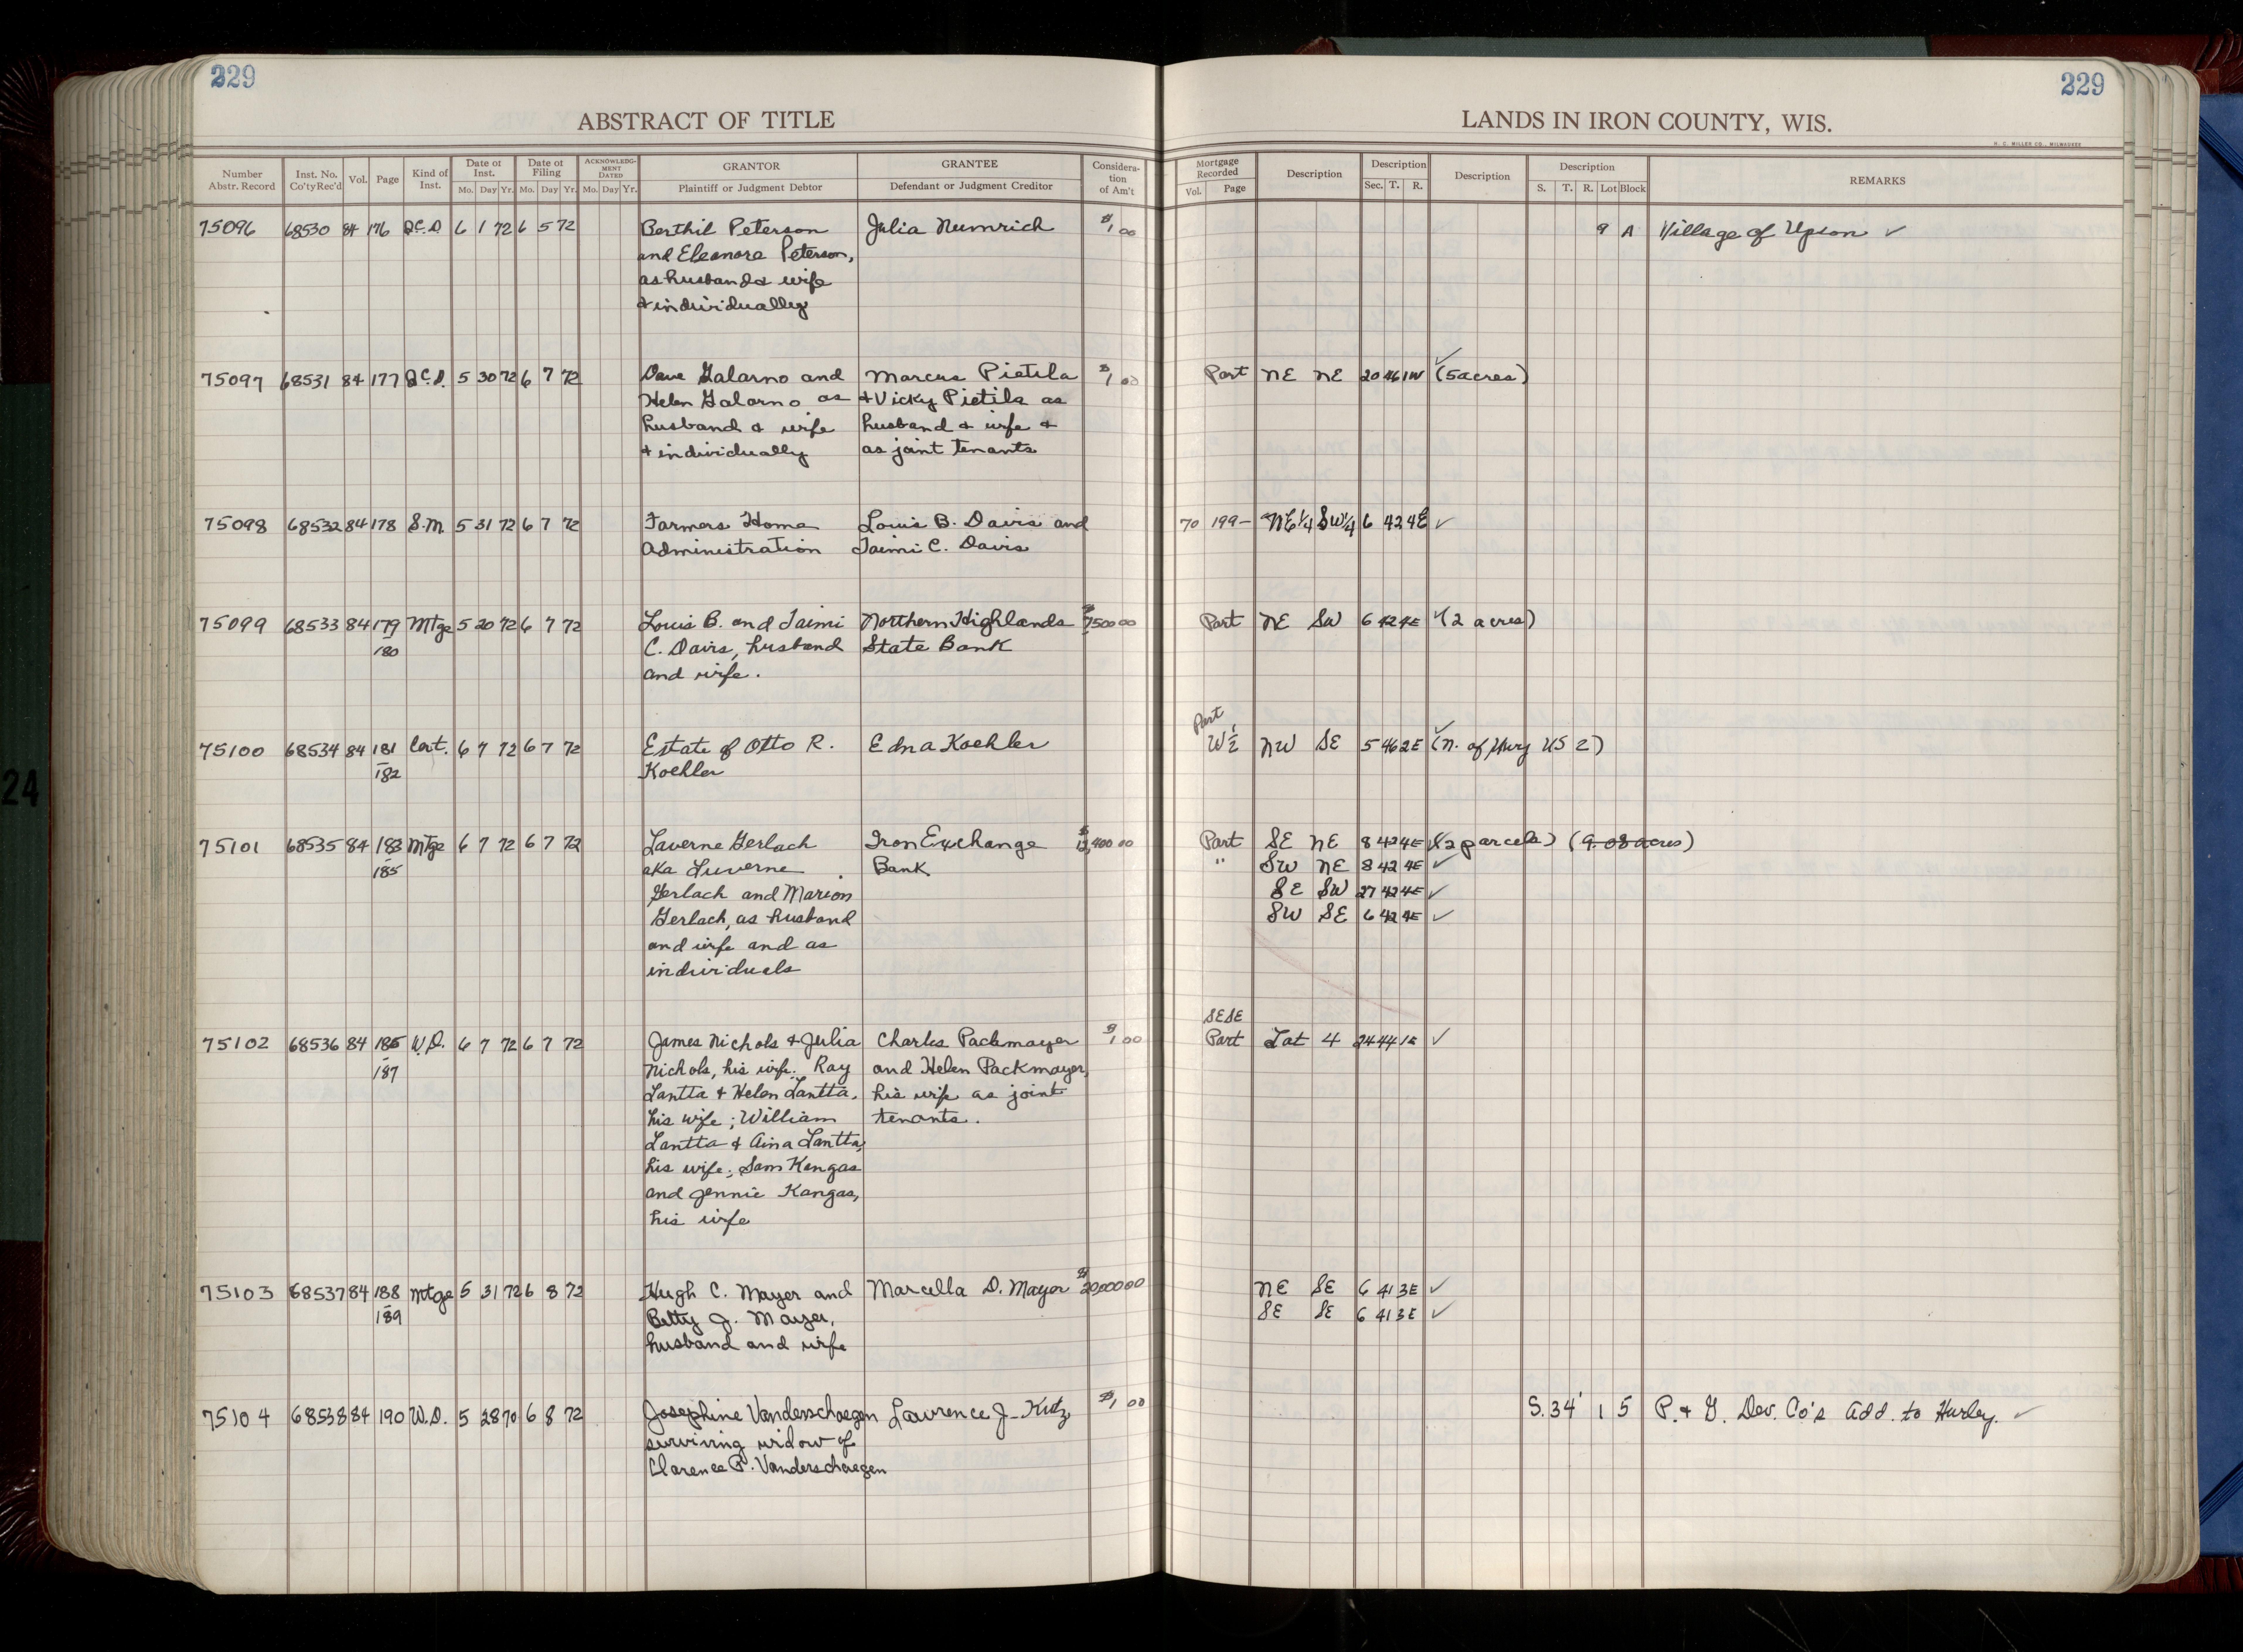 229
229
ABSTRACT OF TITLE
LANDS IN IRON COUNTY, WIS.
H. C. MILLER CO., MILWAUKEE
Number Abstr. Record Inst. No. Co'ty Rec'd Vol. Page Kind of Inst. Date of Inst. Mo. Day Yr. Date of Filing Mo. Day Yr. ACKNOWLEDGMENT DATED Mo. Day Yr. GRANTOR Plaintiff or Judgment Debtor GRANTEE Defendant or Judgment Creditor Considera-tion of Am't Mortgage Recorded Vol. Page Description Description Sec. T. R. Description Description S. T. R. Lot Block REMARKS
75096 68530 84 176 Q.C.D. 6 1 72 6 5 72 Berthil Peterson Julia Numrich $1.00 9 A Village of Upson ✓
and Eleanore Peterson,
as husband & wife
& individually
75097 68531 84 177 Q.C.D. 5 30 72 6 7 72 Dave Galarno and Marcus Pietila $1.00 Part NE NE 20 46 1W ✓ (5 acres)
Helen Galarno as & Vicky Pietila as
husband & wife husband & wife &
& individually as joint tenants
75098 68532 84 178 S.M. 5 31 72 6 7 72 Farmers Home Louis B. Davis and 70 199- NE 1/4 SW 1/4 6 42 4E ✓
Administration Taimi C. Davis
75099 68533 84 179 Mtge 5 20 72 6 7 72 Louis B. and Taimi Northern Highlands $7500 00 Part NE SW 6 42 4E ✓ (2 acres)
180 C. Davis, husband State Bank
and wife.
Part
75100 68534 84 181 Cert. 6 7 72 6 7 72 Estate of Otto R. Edna Koehler W½ NW SE 5 46 2E ✓ (N. of Hwy US 2)
182 Koehler
75101 68535 84 183 Mtge 6 7 72 6 7 72 Laverne Gerlach Iron Exchange $ 400 00 Part SE NE 8 42 4E ✓ (2 parcels) (9.08 acres)
185 aka Luverne Bank " SW NE 8 42 4E ✓
Gerlach and Marion SE SW 27 42 4E ✓
Gerlach, as husband SW SE 6 42 4E ✓
and wife and as
individuals
SESE
75102 68536 84 185 W.D. 6 7 72 6 7 72 James Nichols & Julia Charles Packmayer $1.00 Part Lot 4 24 44 1E ✓
187 Nichols, his wife; Ray and Helen Packmayer,
Lantta & Helen Lantta, his wife as joint
his wife; William tenants.
Lantta & Aina Lantta,
his wife; Sam Kangas
and Jennie Kangas,
his wife
75103 68537 84 188 Mtge 5 31 72 6 8 72 Hugh C. Mayer and Marcella D. Mayer $20,000 00 NE SE 6 41 3E ✓
189 Betty J. Mayer, SE SE 6 41 3E ✓
husband and wife
75104 68538 84 190 W.D. 5 28 70 6 8 72 Josephine Vanderschaegen Lawrence J. Kutz $1.00 S.34' 1 5 P. & G. Dev. Co's Add. to Hurley. ✓
surviving widow of
Clarence P. Vanderschaegen
24